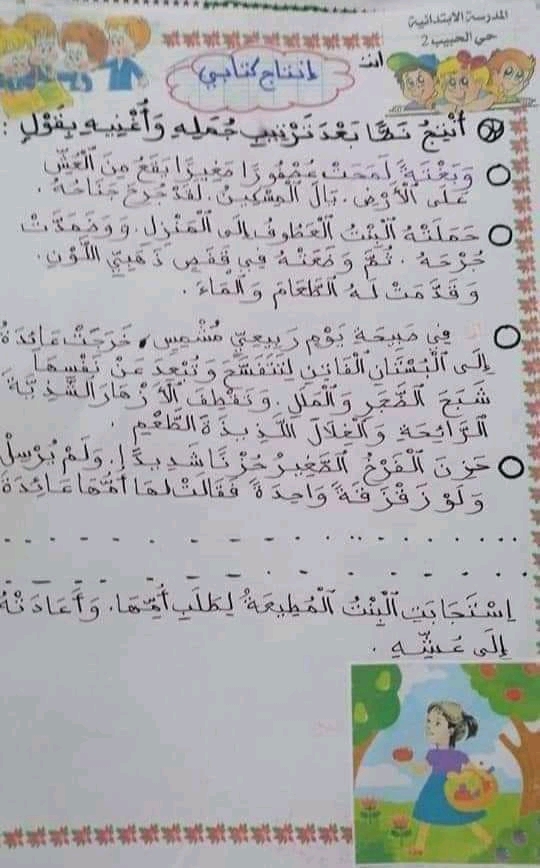 المدرسة الابتدائية
حي الحبيب 2
إنتاج كتابي
أُنْتِجُ نَصًّا بَعْدَ تَرْتِيبِ جُمَلِهِ وَأُغْنِيهِ بِقَوْلٍ :
وَبَغْتَةً لَمَحَتْ عُصْفُورًا صَغِيرًا يَقَعُ مِنَ الْعُشِّ
عَلَى الْأَرْضِ. يَالَ الْمِسْكِينِ. لَقَدْ جُرِحَ جَنَاحُهُ.
حَمَلَتْهُ الْبِنْتُ الْعَطُوفُ إِلَى الْمَنْزِلِ. وَوَضَمَّدَتْ
جُرْحَهُ. ثُمَّ وَضَعَتْهُ فِي قَفَصٍ ذَهَبِيِّ اللَّوْنِ.
وَقَدَّمَتْ لَهُ الطَّعَامَ وَالْمَاءَ.
فِي صَبِيحَةِ يَوْمٍ رَبِيعِيٍّ مُشْمِسٍ، خَرَجَتْ عَائِدَةُ
إِلَى الْبُسْتَانِ الْفَاتِنِ لِتَتَفَسَّحَ وَتُبْعِدَ عَنْ نَفْسِهَا
شَبَحَ الضَّجَرِ وَالْمَلَلِ. وَتَقْطِفَ الْأَزْهَارَ الشَّذِيَّةَ
الرَّائِحَةِ وَالْغِلَالَ اللَّذِيذَةَ الطَّعْمِ.
حَزِنَ الْفَرْخُ الصَّغِيرُ حُزْنًا شَدِيدًا. وَلَمْ يُرْسِلْ
وَلَوْ زَقْزَقَةً وَاحِدَةً فَقَالَتْ لَهَا أُمُّهَا عَائِدَةُ
اِسْتَجَابَتِ الْبِنْتُ الْمُطِيعَةُ لِطَلَبِ أُمِّهَا. وَأَعَادَتْهُ
إِلَى عُشِّهِ.